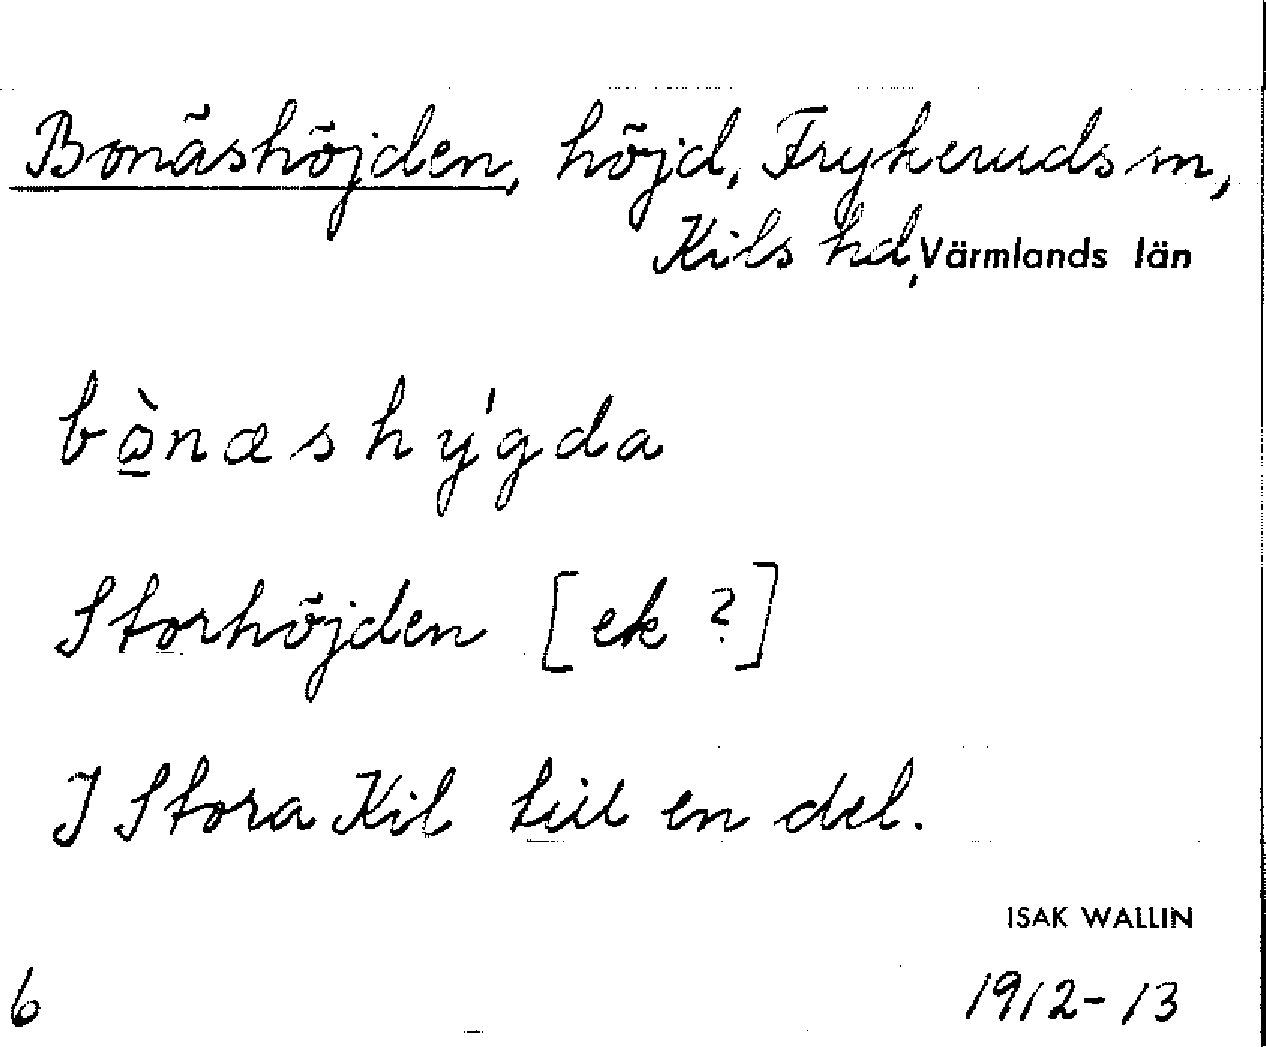 Bonäshöjden, höjd, Frykeruds sn,
Kils hd, Värmlands län
bò̱næshýgda
Storhöjden [ek ?]
I Stora Kil till en del.
ISAK WALLIN
6 1912-13